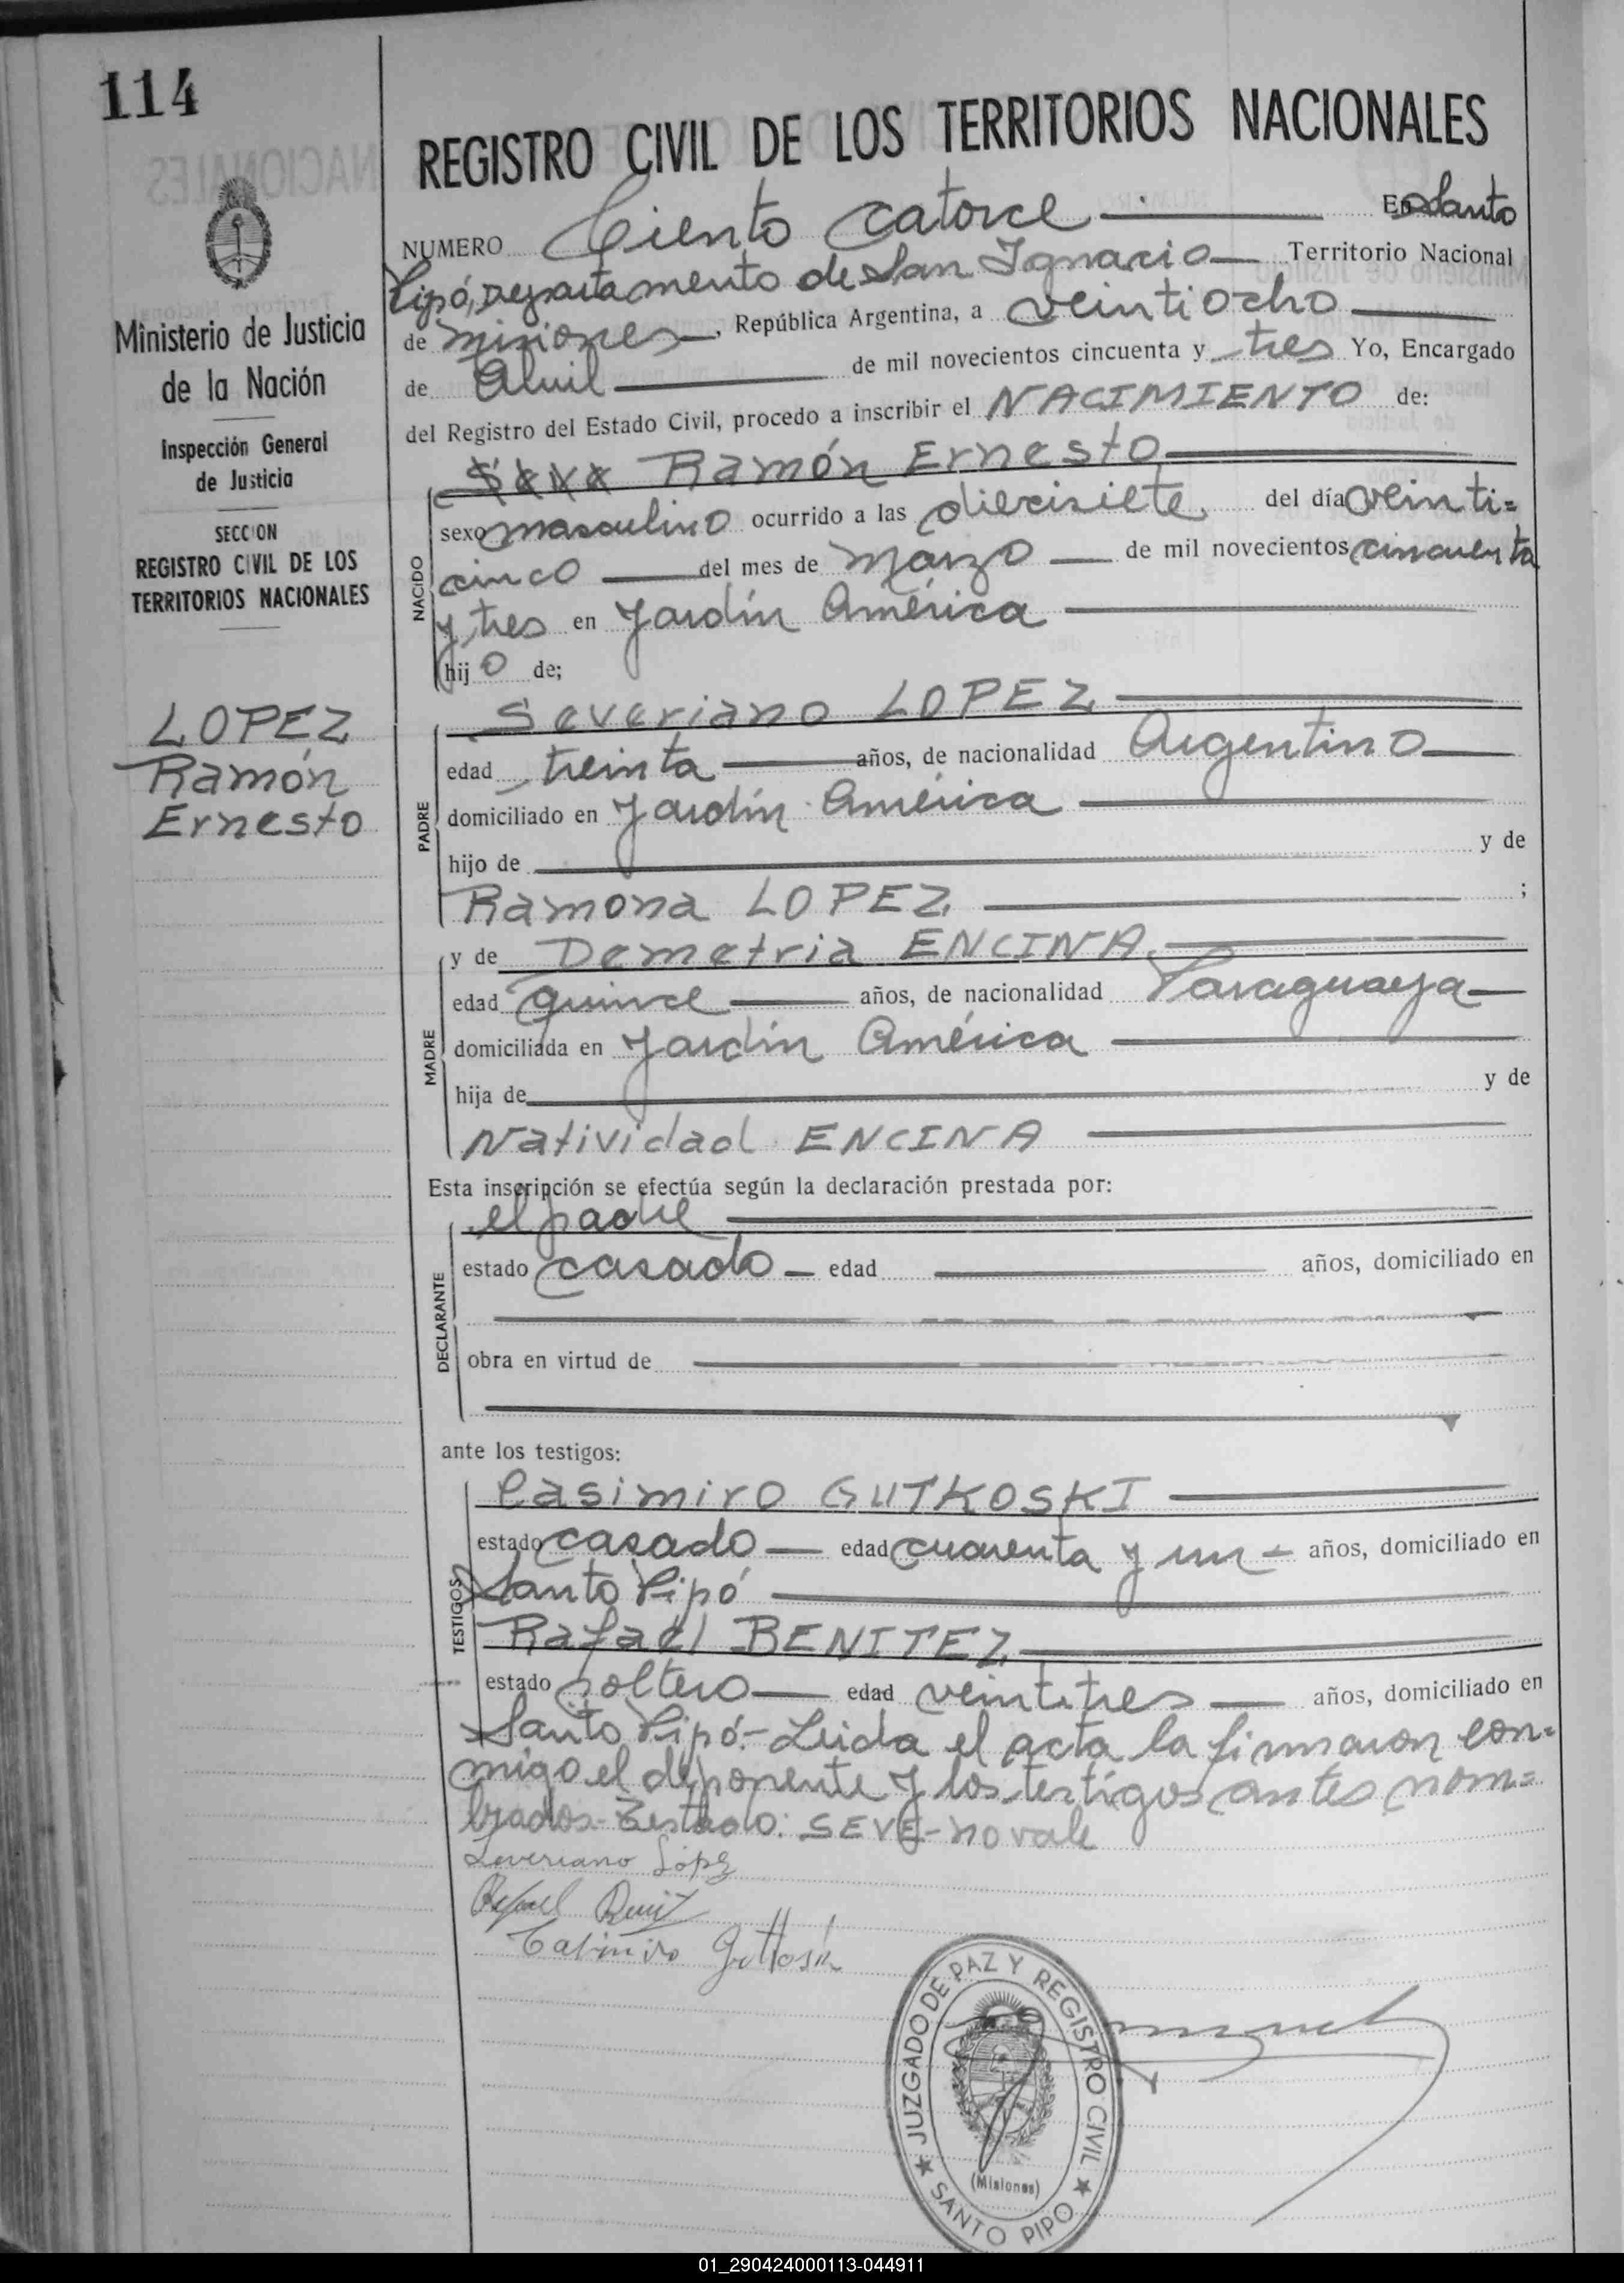 114
REGISTRO CIVIL DE LOS TERRITORIOS NACIONALES
NUMERO Ciento catorce En Santo
Pipó, Departamento de San Ignacio Territorio Nacional
de Misiones, República Argentina, a veintiocho
de Abril de mil novecientos cincuenta y tres Yo, Encargado
del Registro del Estado Civil, procedo a inscribir el NACIMIENTO de:
Ramón Ernesto
sexo masculino ocurrido a las diecisiete del día veinti=
cinco del mes de marzo de mil novecientos cincuenta
y tres en Jardín América
hijo de;
NACIDO
Severiano LOPEZ
edad treinta años, de nacionalidad Argentino
domiciliado en Jardín América
hijo de y de
Ramona LOPEZ ;
PADRE
y de Demetria ENCINA
edad quince años, de nacionalidad Paraguaya
domiciliada en Jardín América
hija de y de
Natividad ENCINA
MADRE
Esta inscripción se efectúa según la declaración prestada por:
el padre
estado casado edad años, domiciliado en
obra en virtud de
DECLARANTE
ante los testigos:
Casimiro GUTKOSKI
estado casado edad cuarenta y un años, domiciliado en
Santo Pipó
Rafael BENITEZ
estado soltero edad veintitres años, domiciliado en
TESTIGOS
Santo Pipó.- Leida el acta la firmaron con=
migo el deponente y los testigos antes nom=
brados- Testado: SEVE- no vale
Severiano López
Casimiro
Ministerio de Justicia
de la Nación
Inspección General
de Justicia
SECCION
REGISTRO CIVIL DE LOS
TERRITORIOS NACIONALES
LOPEZ
Ramón
Ernesto
JUZGADO DE PAZ Y REGISTRO CIVIL
(Misiones)
SANTO PIPO
01_290424000113-044911